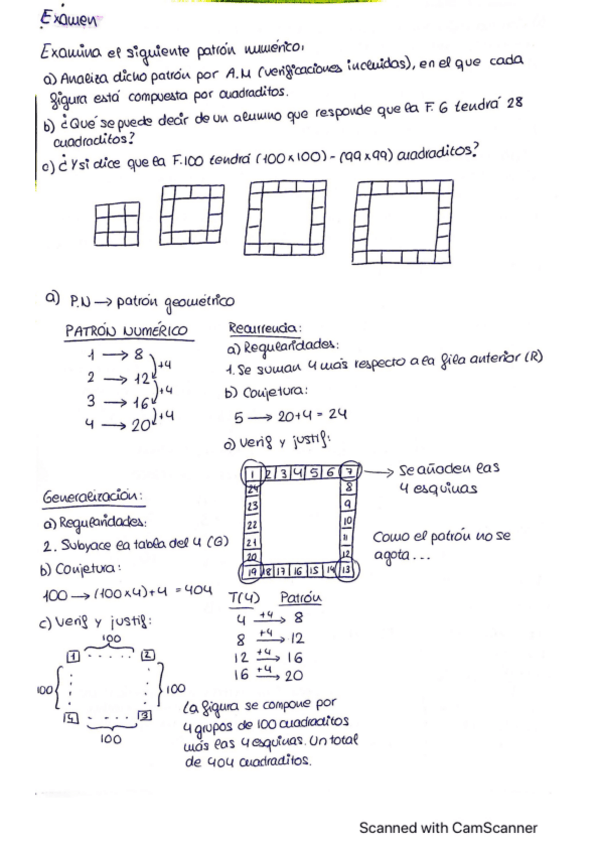 Examen
Examina el siguiente patrón numérico.
a) Analiza dicho patrón por A.M (verificaciones incluidas), en el que cada
figura está compuesta por cuadraditos.
b) ¿Qué se puede decir de un alumno que responde que la F.6 tendrá 28
cuadraditos?
c) ¿Y si dice que la F.100 tendrá (100x100) - (99x99) cuadraditos?
a) P.N → patrón geométrico
PATRÓN NUMÉRICO
1 → 8
+4
2 → 12
+4
3 → 16
+4
4 → 20
Recurrencia:
a) Regularidades:
1. Se suman 4 más respecto a la fila anterior (R)
b) Conjetura:
5 → 20+4 = 24
c) Verif y justif:
1 2 3 4 5 6 7
24 8
23 9
22 10
21 11
20 12
19 18 17 16 15 14 13
→ Se añaden las
4 esquinas
Como el patrón no se
agota...
Generalización:
a) Regularidades:
2. Subyace la tabla del 4 (G)
b) Conjetura:
100 → (100x4)+4 = 404
c) Verif y justif:
100
1 ..... 2
100 100
4 ..... 3
100
T(4) Patrón
4 +4→ 8
8 +4→ 12
12 +4→ 16
16 +4→ 20
La figura se compone por
4 grupos de 100 cuadraditos
más las 4 esquinas. Un total
de 404 cuadraditos.
Scanned with CamScanner